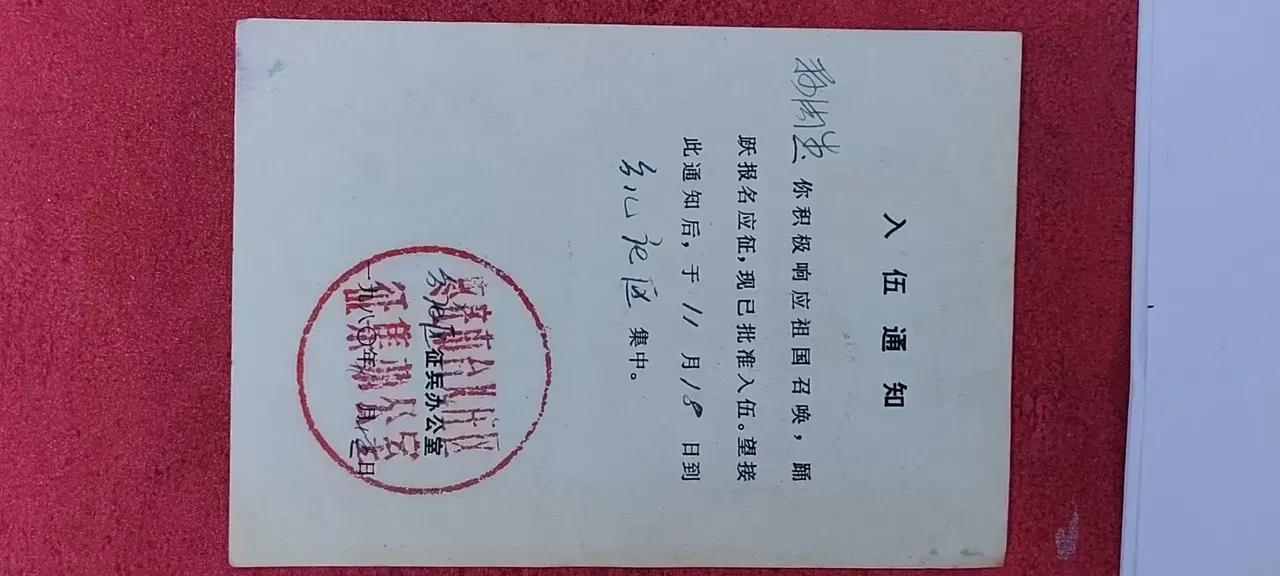 入伍通知
你积极响应祖国召唤，踊
跃报名应征，现已批准入伍。望接
此通知后，于11月18日到
区集中。
征兵办公室
一九八〇年 月 日